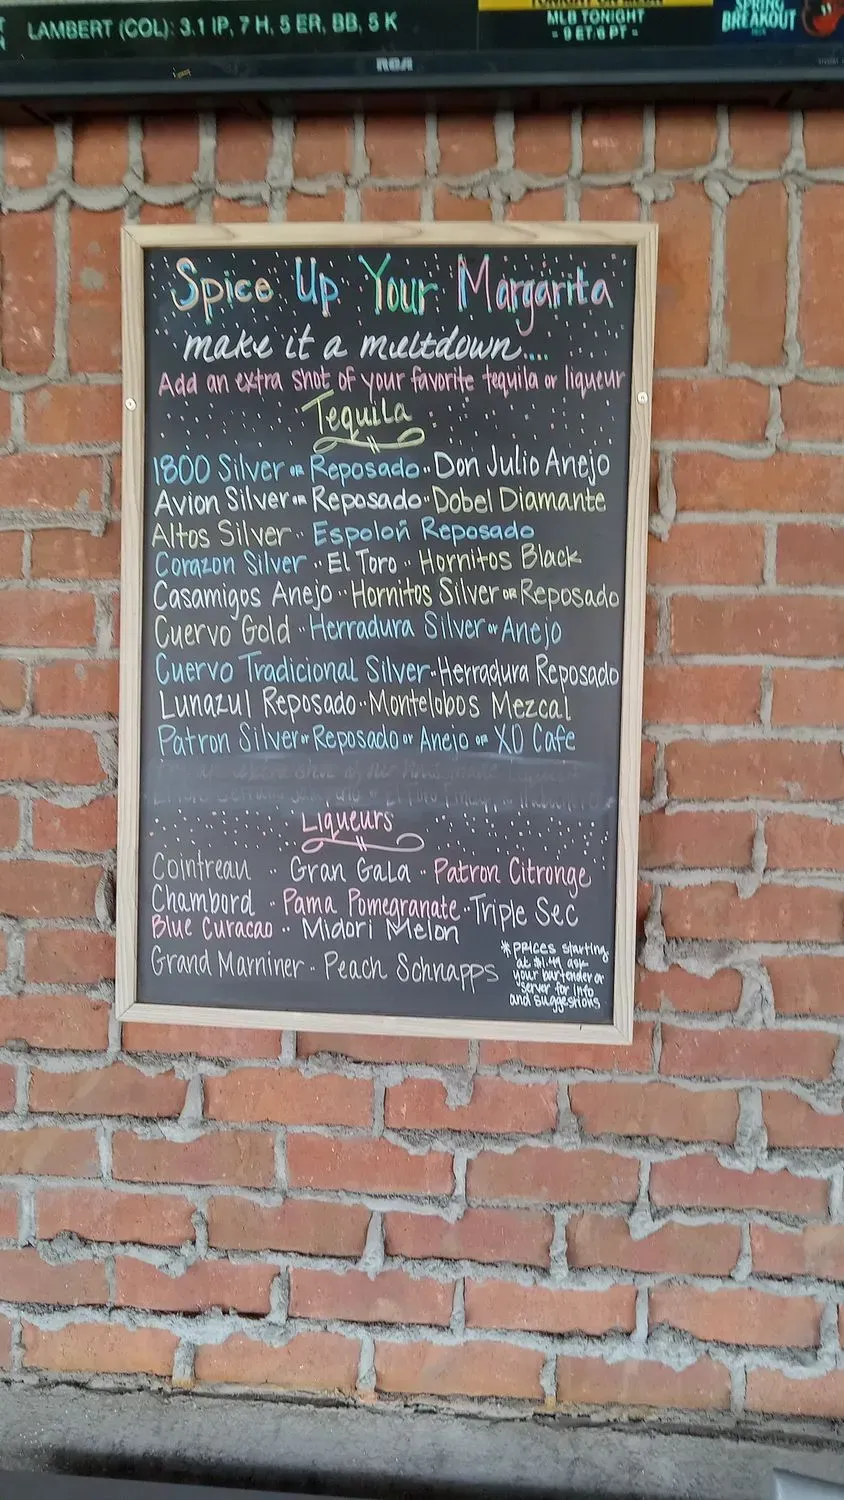 LAMBERT (COL): 3.1 IP, 7 H, 5 ER, BB, 5 K
MLB TONIGHT
- 9 ET/6 PT -
SPRING
BREAKOUT
RCA
Spice Up Your Margarita
make it a meltdown...
Add an extra shot of your favorite tequila or liqueur
Tequila
1800 Silver OR Reposado·· Don Julio Anejo
Avion Silver OR Reposado·· Dobel Diamante
Altos Silver ·· Espoloñ Reposado
Corazon Silver ·· El Toro ·· Hornitos Black
Casamigos Anejo ·· Hornitos Silver OR Reposado
Cuervo Gold · Herradura Silver or Anejo
Cuervo Tradicional Silver·· Herradura Reposado
Lunazul Reposado·· Montelobos Mezcal
Patron Silver or Reposado or Anejo or XO Cafe
Liqueurs
Cointreau ·· Gran Gala · Patron Citronge
Chambord · Pama Pomegranate ·· Triple Sec
Blue Curacao ·· Midori Melon
Grand Marniner · Peach Schnapps
* prices starting
at $1.49 ask
your bartender or
server for info
and suggestions